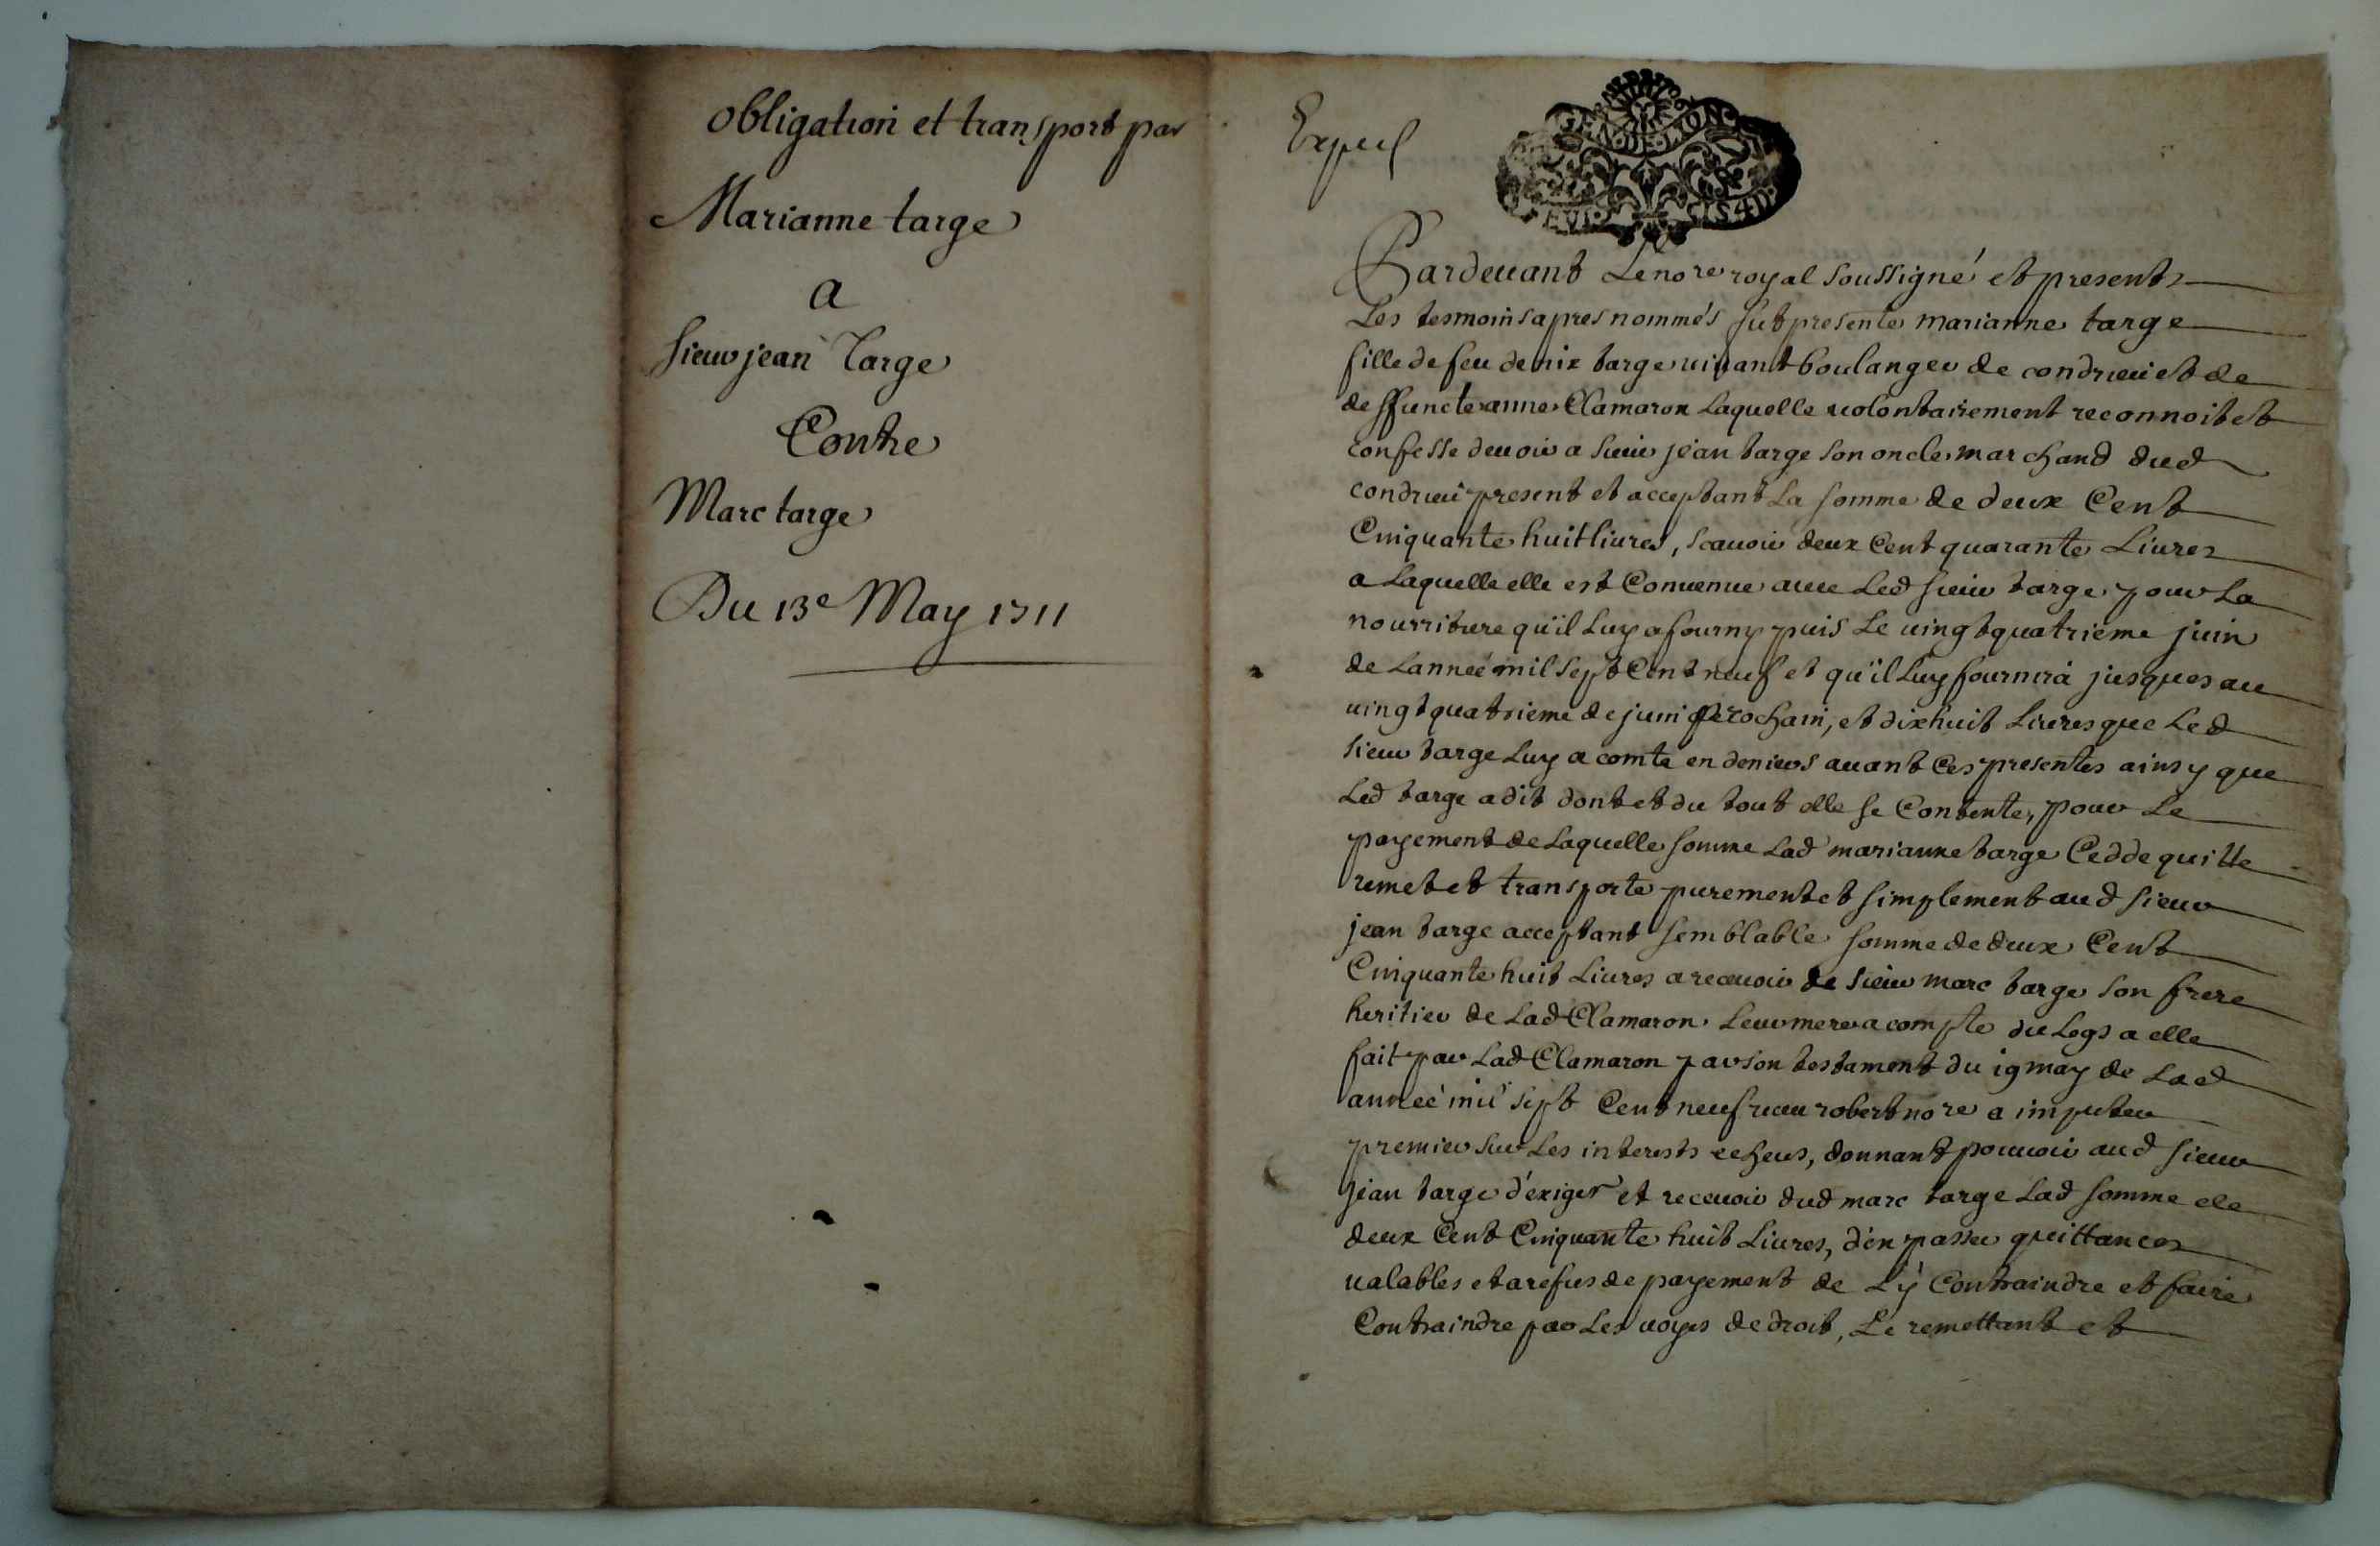 obligation et transport par
Marianne targe
a
sieur jean Targe
Contre
Marc targe
Du 13e May 1711
GEN·DE·LYON
Pardeuant Le nore royal soussigné et presents
Les tesmoins apres nommés fut presente marianne targe
fille de feu denix targe uiuant boulanger de condrieu et de
deffuncte anne Clamaron Laquelle uolontairement reconnoit et
confesse deuoir a sieur jean targe son oncle marchand dud
condrieu present et acceptant La somme de deux Cent
Cinquante huit liures, scauoir deux Cent quarante Liures
a Laquelle elle est Conuenue auec Led sieur targe pour La
nourriture qu'il Luy a fourny puis Le uingtquatrieme juin
de Lanneé mil sept Cent neuf et qu'il Luy fournira jusques au
uingtquatrieme de juin prochain, et dixhuit Liures que Led
sieur targe Luy a comte en deniers auant Ces presentes ainsy que
Led targe a dit dont et du tout elle se Contente, pour Le
payement de Laquelle somme Lad marianne targe Cedde quitte
remet et transporte purement et simplement aud sieur
jean targe acceptant semblable somme de deux Cent
Cinquante huit Liures a receuoir de sieur marc targe son frere
heritier de Lad Clamaron Leur mere a compte du Legs a elle
fait par Lad Clamaron par son testament du 19 may de Lad
anneé mil sept Cent neuf receu robert nore a imputer
premier sur Les interests echeus, donnant pouuoir aud sieur
jean targe d'exiger et receuoir dud marc targe Lad somme de
deux Cent Cinquante huit Liures, d'en passer quittances
ualables et a refus de payement de L'y Contraindre et faire
Contraindre par Les uoyes de droit, Le remettant et